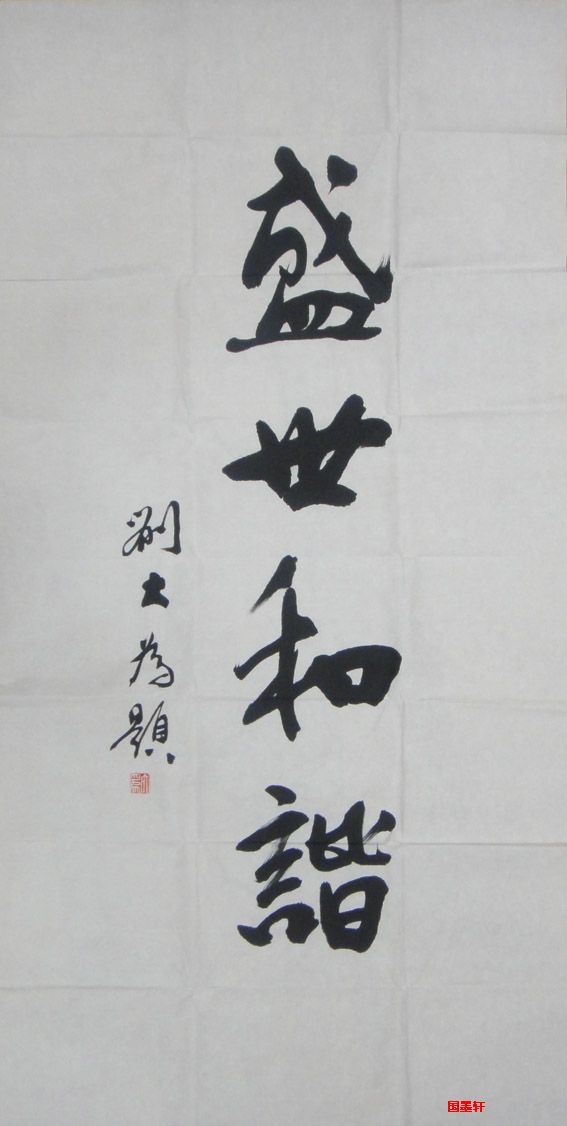 盛世和諧
劉大為題
国墨轩